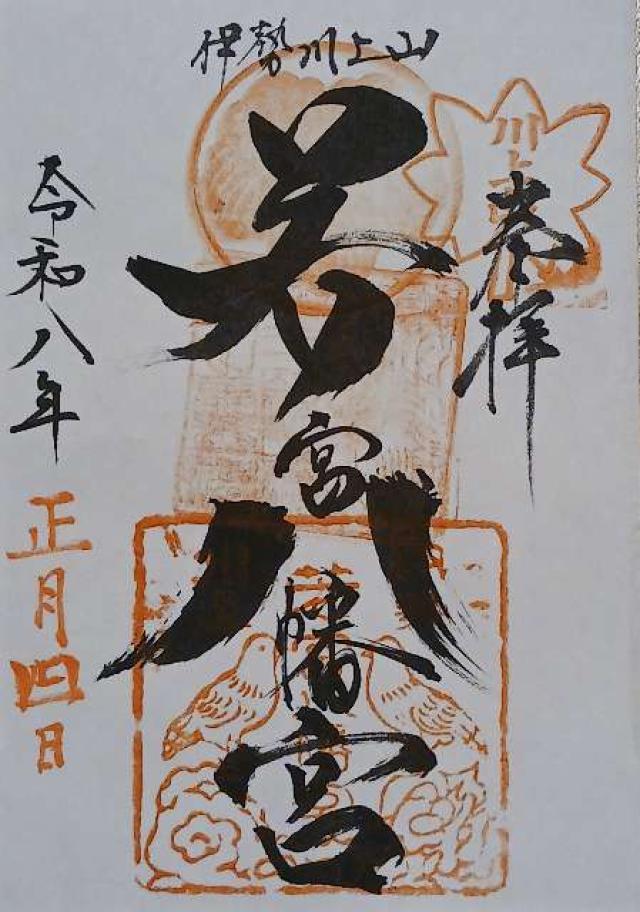 伊勢川上山
奉拝
若宮八幡宮
令和八年
正月四日